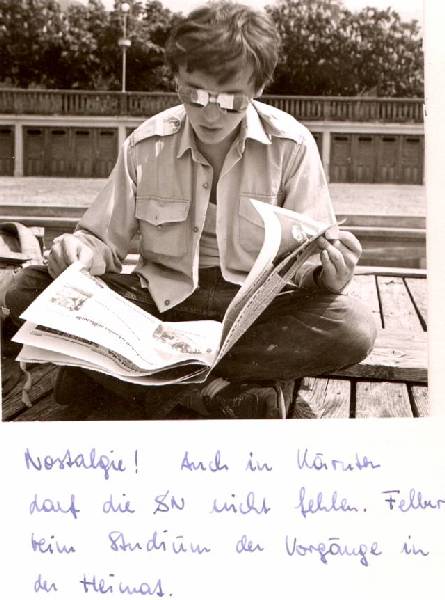 Nostalgie! Auch in Kärnten
darf die SN nicht fehlen. Felber
beim Studium der Vorgänge in
der Heimat.